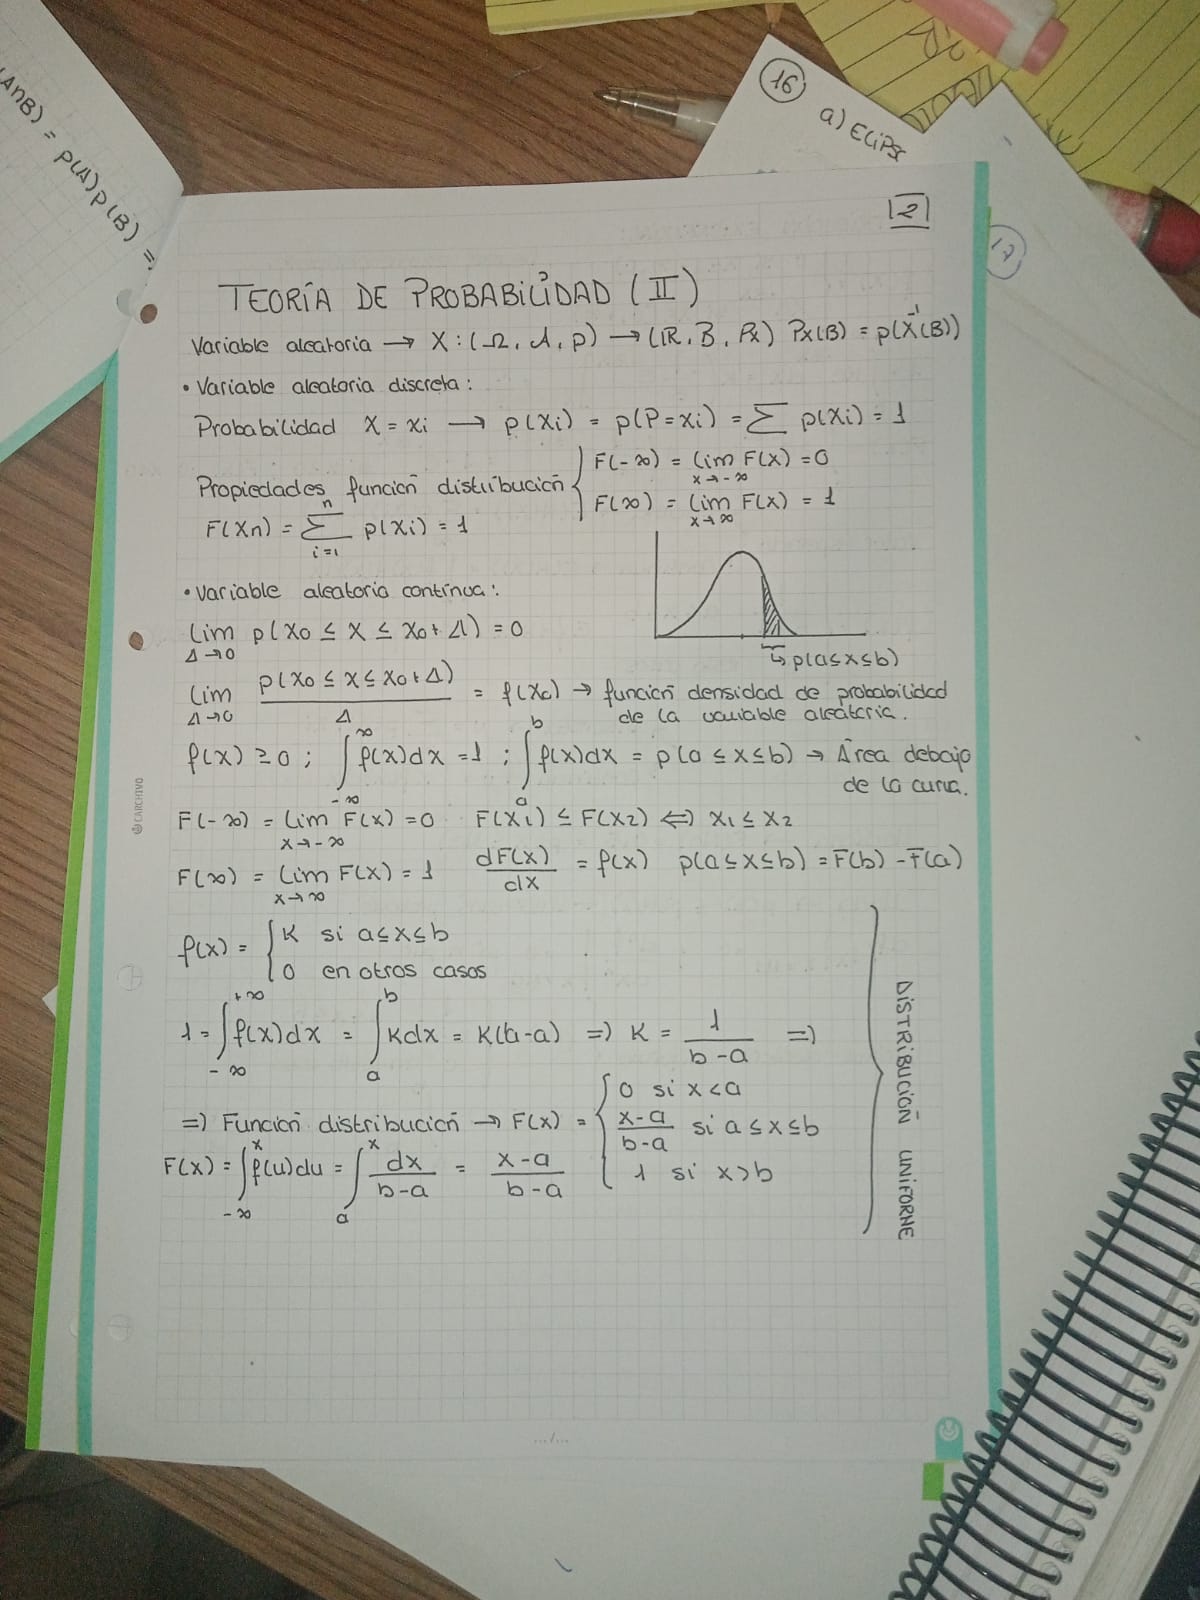 (A∩B) = P(A)p(B) =)
16
a) Eclipse
17
2
TEORÍA DE PROBABILIDAD (II)
Variable aleatoria → X : (Ω, A, p) → (ℝ, B, Px) Px(B) = p(X⁻¹(B))
• Variable aleatoria discreta :
Probabilidad X = xi → p(Xi) = p(P=xi) = ∑ p(Xi) = 1
Propiedades función distribución { F(-∞) = lim x→-∞ F(x) = 0
F(∞) = lim x→∞ F(x) = 1
F(Xn) = ∑ i=1 n p(Xi) = 1
• Variable aleatoria continua :
lim Δ→0 p(X0 ≤ X ≤ X0+Δ) = 0
↳ p(a≤x≤b)
lim Δ→0 p(X0 ≤ X ≤ X0+Δ) / Δ = f(X0) → función densidad de probabilidad
de la variable aleatoria.
f(x) ≥ 0 ; ∫ -∞ ∞ f(x)dx = 1 ; ∫ a b f(x)dx = p(a ≤ x ≤ b) → Área debajo
de la curva.
F(-∞) = lim x→-∞ F(x) = 0 F(X1) ≤ F(X2) ⇔ X1 ≤ X2
F(∞) = lim x→∞ F(x) = 1 dF(x)/dx = f(x) p(a≤x≤b) = F(b) - F(a)
f(x) = { K si a≤x≤b
0 en otros casos
1 = ∫ -∞ +∞ f(x)dx = ∫ a b Kdx = K(b-a) =) K = 1/(b-a) =)
=) Función distribución → F(x) = { 0 si x<a
(x-a)/(b-a) si a≤x≤b
1 si x>b
F(x) = ∫ -∞ x f(u)du = ∫ a x dx/(b-a) = (x-a)/(b-a)
DISTRIBUCIÓN UNIFORME
CARCHIVO
.../...